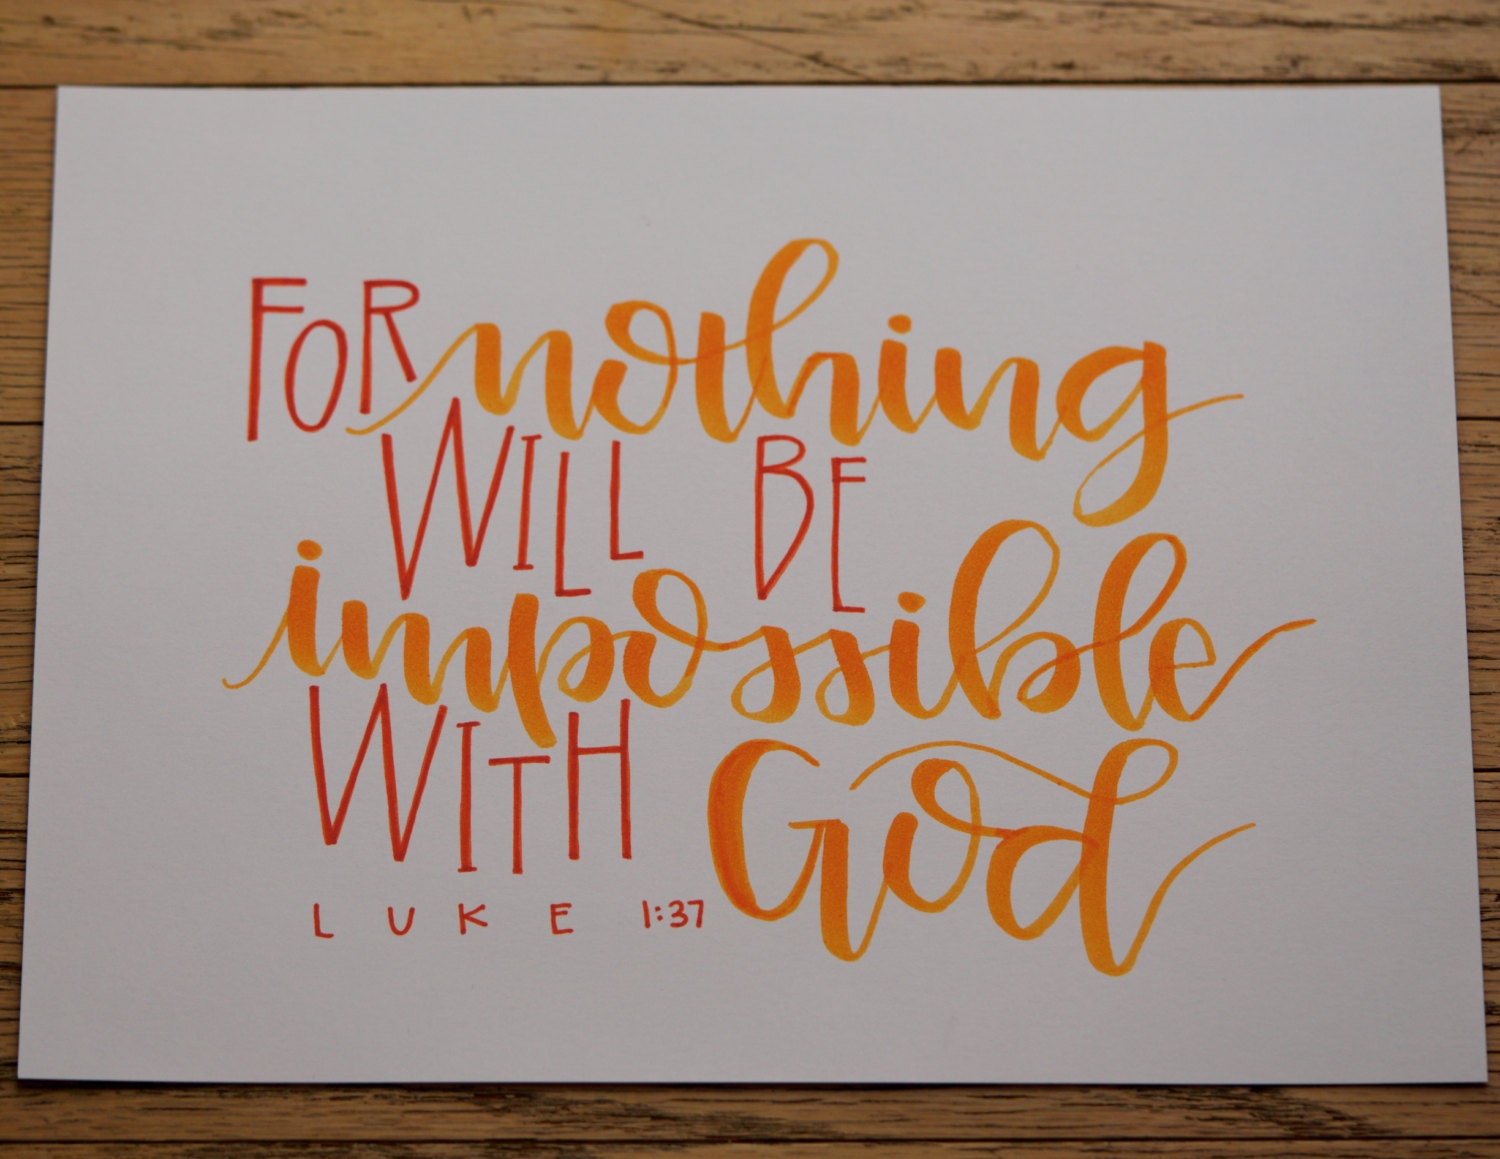 FOR nothing
WILL BE
impossible
WITH God
LUKE 1:37